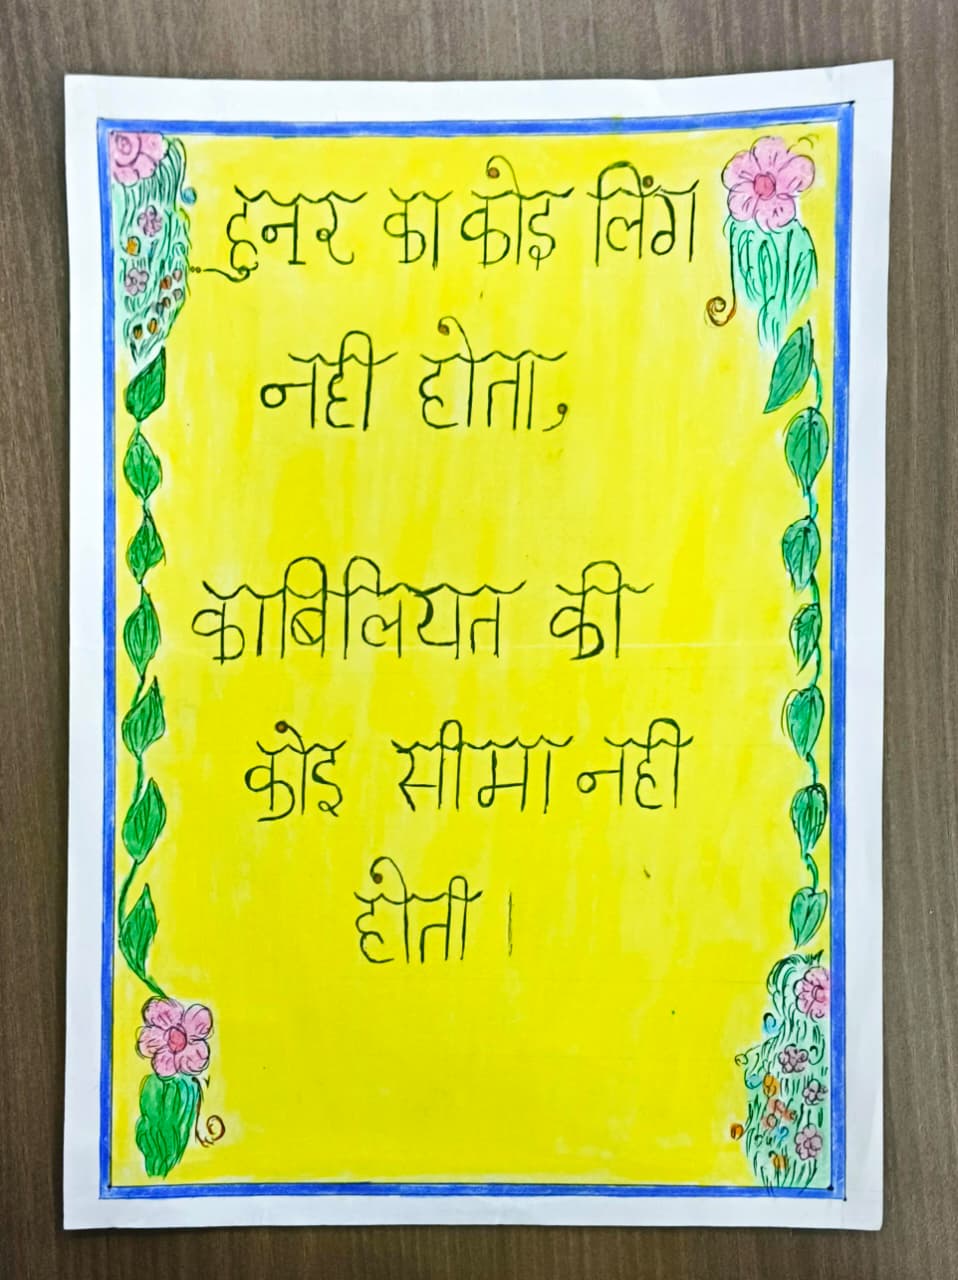 हुनर का कोइ लिंग
नही होता,
काबिलियत की
कोइ सीमा नही
होती ।